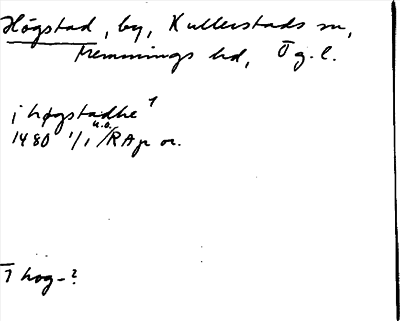 Högstad, by, Kullerstads sn,
Memmings hd, Ög. l.
j høgstadhe 1
u.o.
1480 1/1 RAp or.
1 hög-?